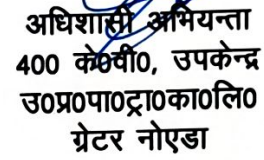 अधिशासी अभियन्ता
400 के०वी०, उपकेन्द्र
उ०प्र०पा०ट्रा०का०लि०
ग्रेटर नोएडा